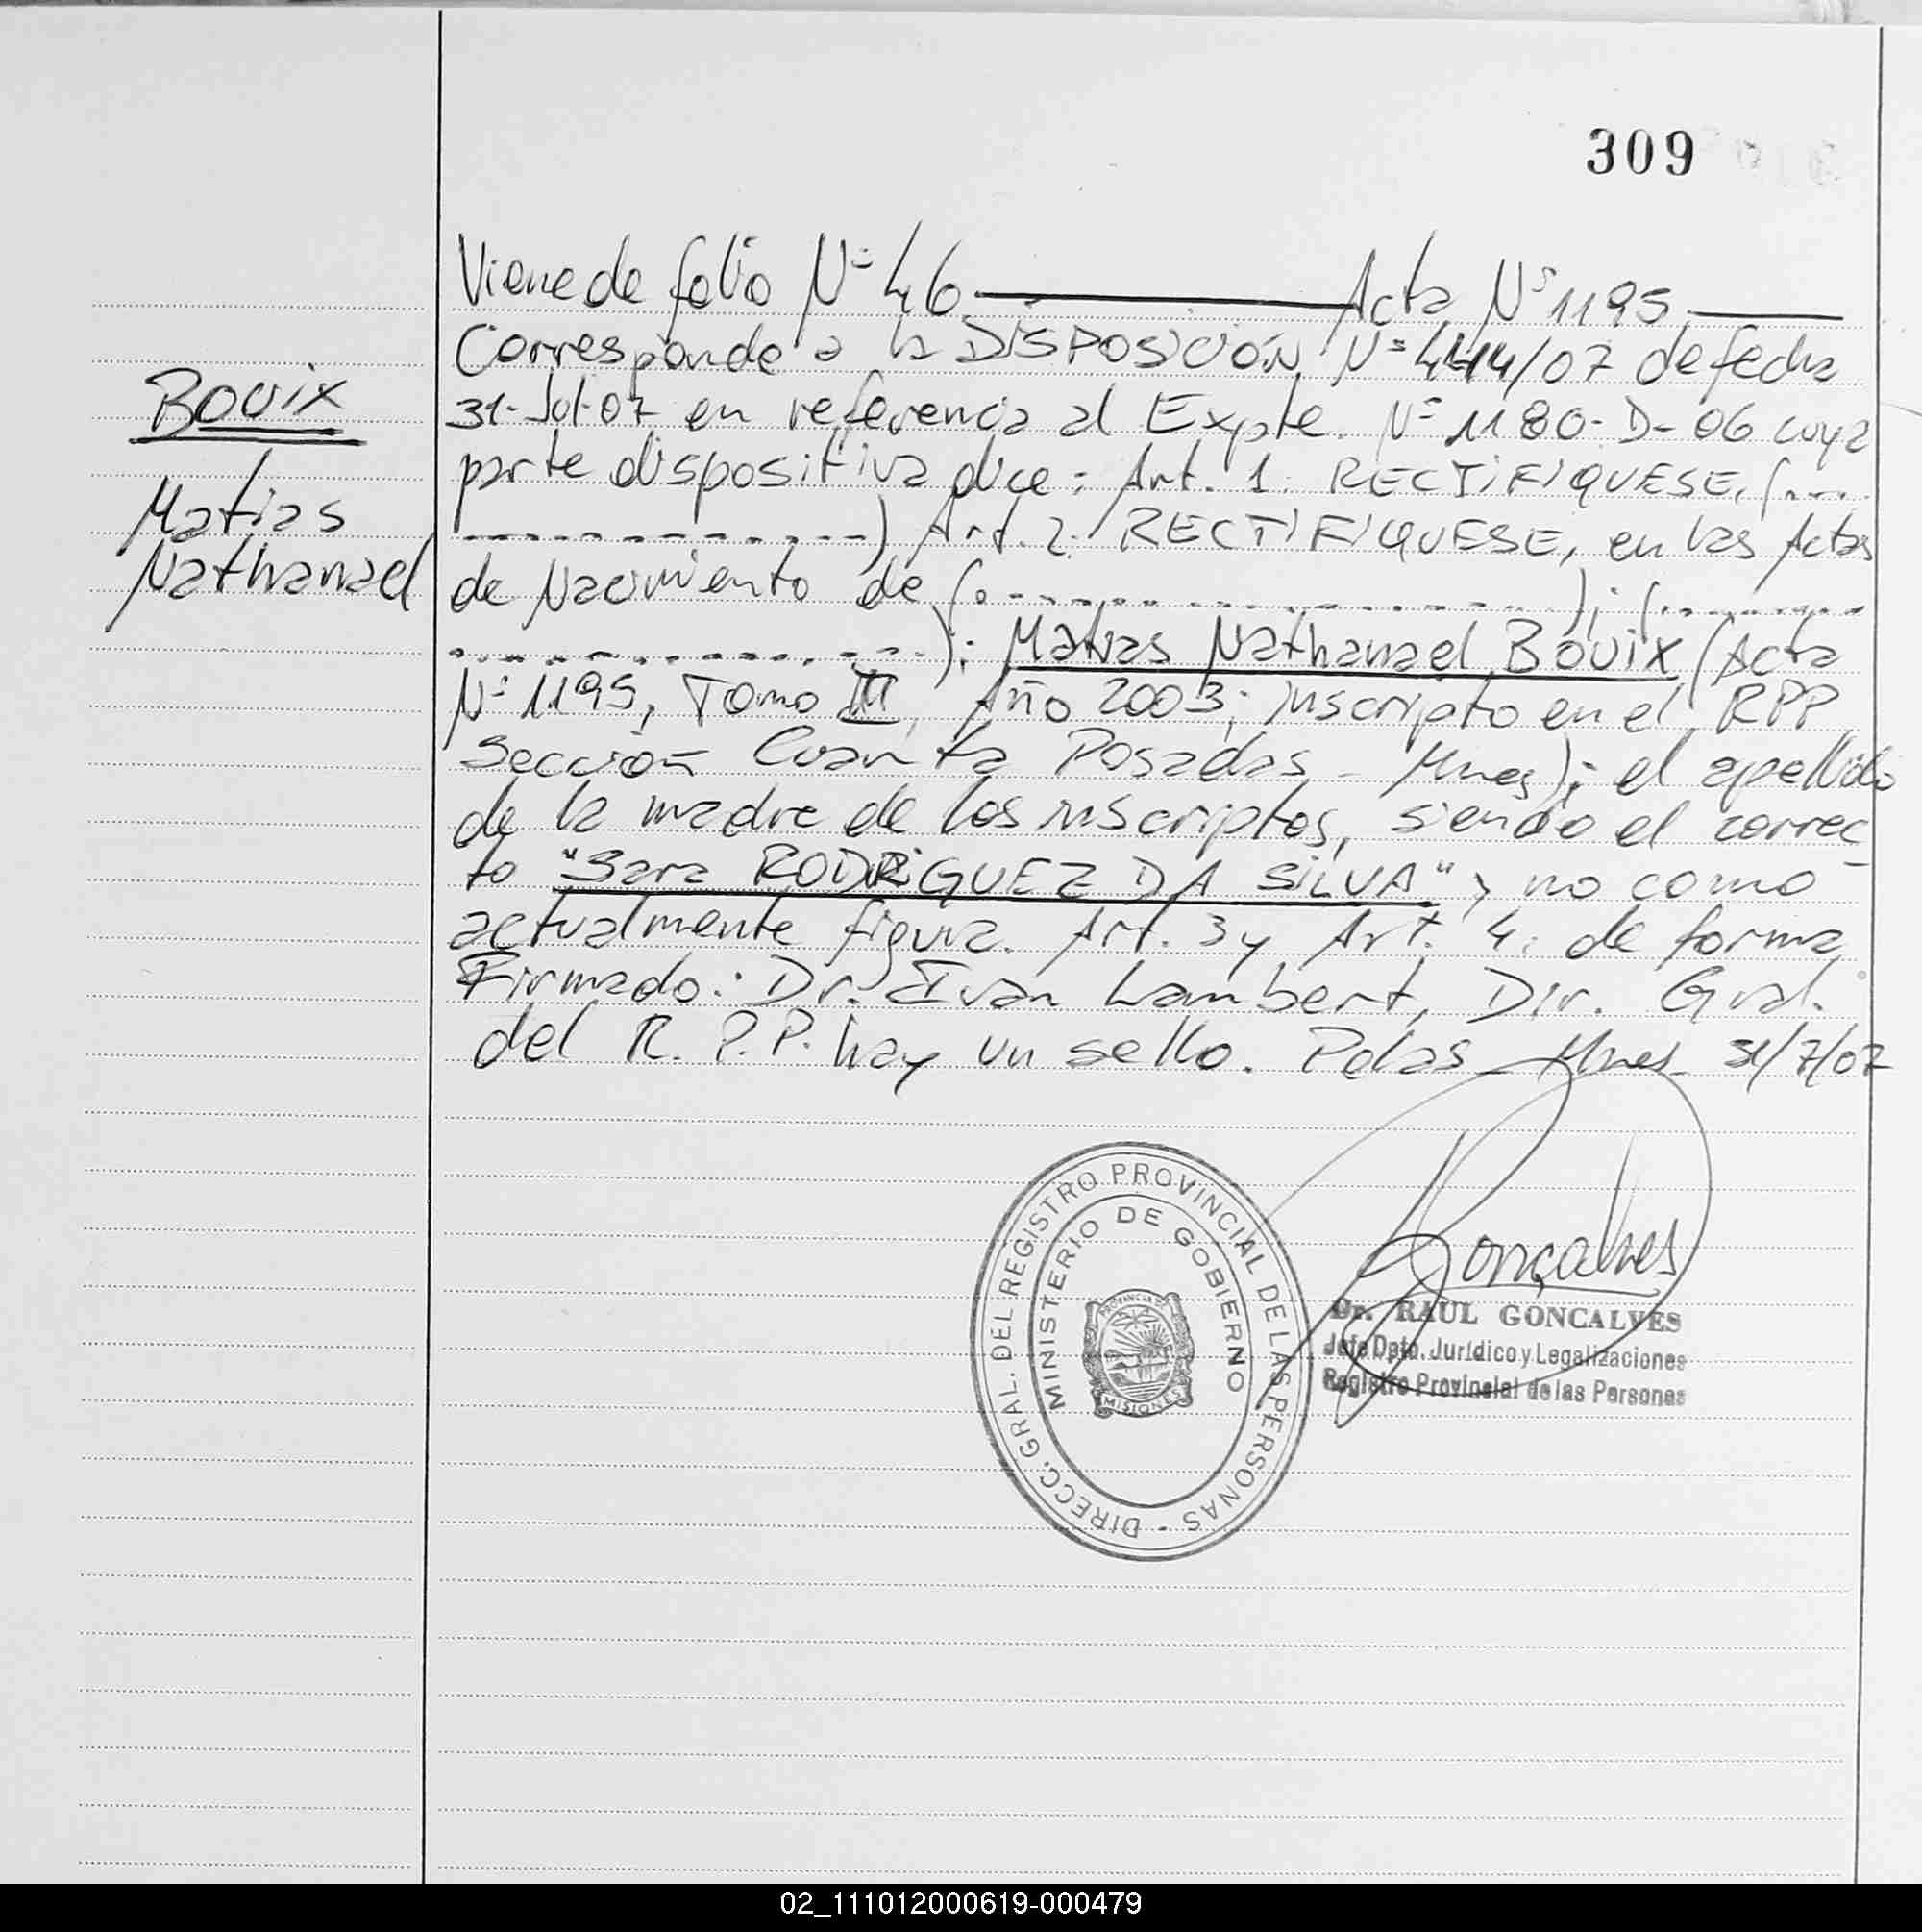 309
Viene de folio Nº 46. Acta Nº 1195.
Corresponde a la DISPOSICIÓN Nº 444/07 de fecha
31-Jul-07 en referencia al Expte. Nº 1180-D-06 cuya
parte dispositiva dice: Art. 1. RECTIFIQUESE, (....
..............) Art. 2. RECTIFIQUESE, en las Actas
de Nacimiento de (..................); (..........
..............); Matias Nathanael BOUIX (Acta
Nº 1195, Tomo III, Año 2003; inscripto en el RPP
Sección Cuarta Posadas - Mnes); el apellido
de la madre de los inscriptos, siendo el correc
to "Sara RODRIGUEZ DA SILVA" y no como
actualmente figura. Art. 3 y Art. 4. de forma
Firmado: Dr. Ivan Lambert, Dir. Gral.
del R. P.P. hay un sello. Pdas - Mnes - 31/7/07
BOUIX
Matias
Nathanael
DIRECC. GRAL. DEL REGISTRO PROVINCIAL DE LAS PERSONAS -
MINISTERIO DE GOBIERNO
PROVINCIA DE
MISIONES
Gonçalves
Dr. RAUL GONCALVES
Jefe Dpto. Jurídico y Legalizaciones
Registro Provincial de las Personas
02_111012000619-000479